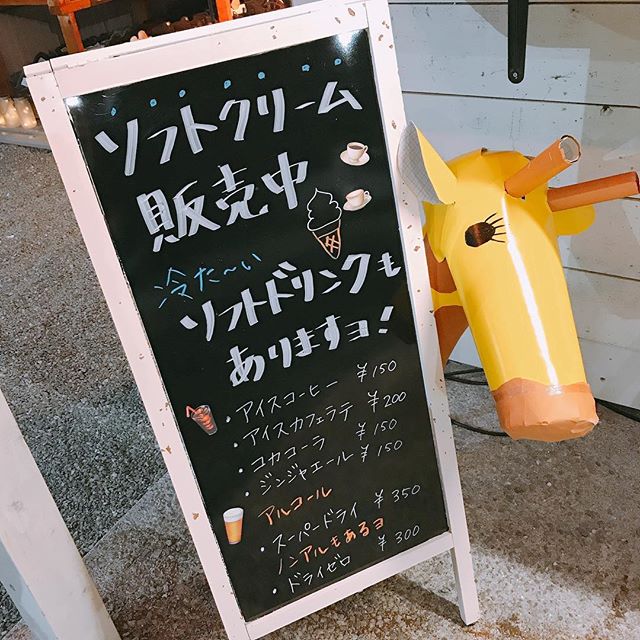 ソフトクリーム
販売中
冷た〜い
ソフトドリンクも
ありますヨ!
・アイスコーヒー ¥150
・アイスカフェラテ ¥200
・コカコーラ ¥150
・ジンジャエール ¥150
アルコール
・スーパードライ ¥350
ノンアルもあるヨ
・ドライゼロ ¥300